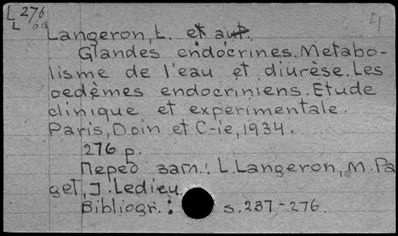 L 276
L
Langeron, L. et aut.
Glandes endocrines. Metabo-
lisme de l'eau et diurèse. Les
oedèmes endocriniens. Etude
clinique et experimentale.
Paris, Doin et C-ie, 1934.
276 p.
Перед загл.: L. Langeron, M. Pa
get, J. Ledieu.
Bibliogr.: s. 237-276.